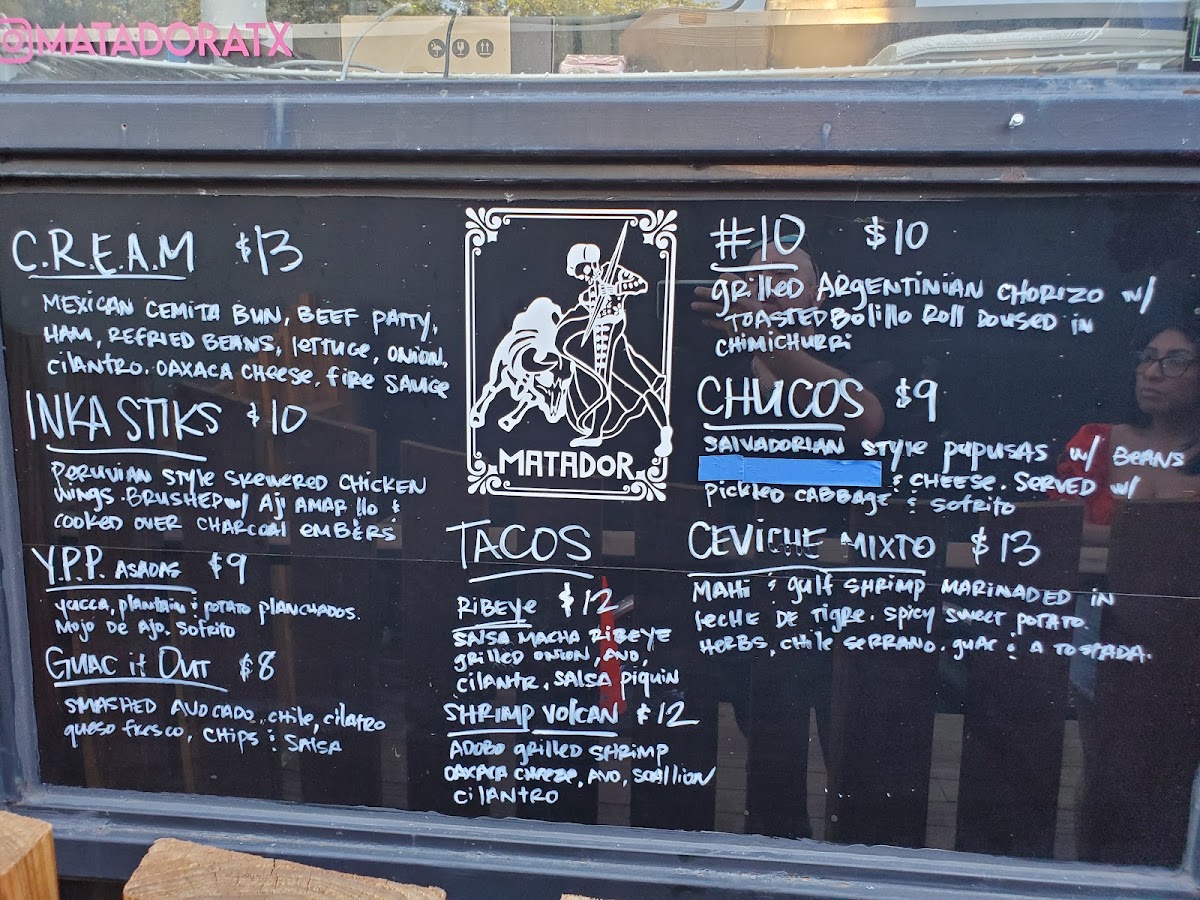 @MATADORATX
C.R.E.A.M $13
MEXICAN CEMITA BUN, BEEF PATTY,
HAM, REFRIED BEANS, LETTUCE, ONION,
CILANTRO. OAXACA CHEESE, FIRE SAUCE
INKA STIKS $10
PERUVIAN STYLE SKEWERED CHICKEN
WINGS. BRUSHED W/ AJI AMARILLO &
COOKED OVER CHARCOAL EMBERS
Y.P.P. ASADAS $9
YUCCA, PLANTAIN & POTATO PLANCHADOS.
MOJO DE AJO. SOFRITO
GUAC it OUT $8
SMASHED AVOCADO, CHILE, CILATRO
QUESO FRESCO, CHIPS & SALSA
MATADOR
TACOS
RIBEYE $12
SALSA MACHA RIBEYE
GRILLED ONION, AVO,
CILANTR. SALSA PIQUIN
SHRIMP VOLCAN $12
ADOBO GRILLED SHRIMP
OAXACA CHEEZE, AVO, SCALLION
CILANTRO
#10 $10
GRILLED ARGENTINIAN CHORIZO W/
TOASTED BOLILLO ROLL DOUSED IN
CHIMICHURRI
CHUCOS $9
SALVADORIAN STYLE PUPUSAS W/ BEANS
& CHEESE. SERVED W/
PICKLED CABBAGE & SOFRITO
CEVICHE MIXTO $13
MAHI & GULF SHRIMP MARINADED IN
LECHE DE TIGRE. SPICY SWEET POTATO.
HERBS, CHILE SERRANO. GUAC & A TOSTADA.